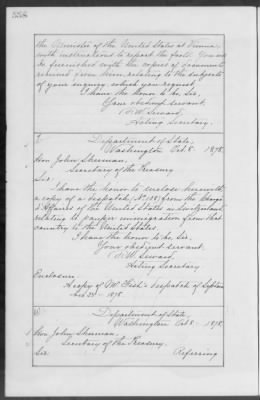 558
the Minister of the United States at Vienna
with instructions to report the facts. You will
be furnished with the copies of documents
received from them, relating to the subjects
of your inquiry, which you request.
I have the honor to be, Sir,
Your obedient servant,
F. W. Seward,
Acting Secretary.
Department of State,
Washington Oct. 8. 1878.
Hon. John Sherman,
Secretary of the Treasury
Sir:
I have the honor to enclose herewith
a copy of a despatch (No 138) from the Chargé
d'Affaires of the United States in Switzerland
relating to pauper immigration from that
country to the United States.
I have the honor to be, Sir,
Your obedient servant,
F. W. Seward,
Acting Secretary
Enclosure:
A copy of Mr Fish's despatch of Septem
ber 23 1878.
Department of State,
Washington Oct 8. 1878.
Hon. John Sherman,
Secretary of the Treasury.
Sir: Referring